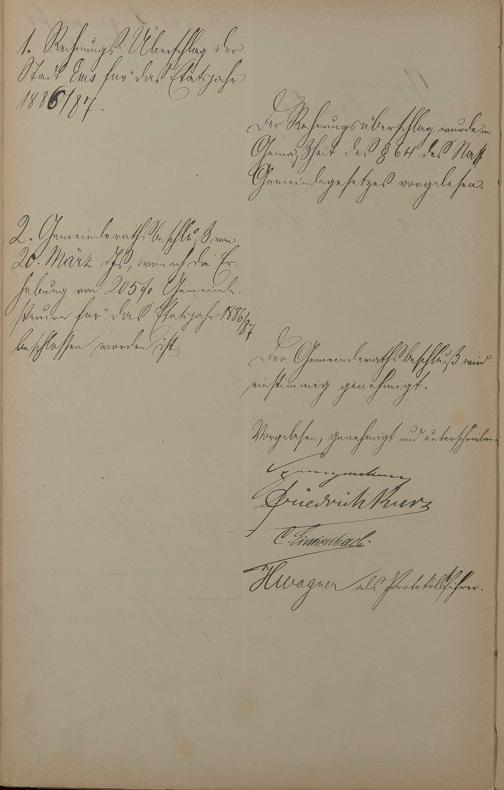 1. Rechnungs-Überschlag der
Stadt Ems für das Etatsjahr
1886/87.
Der Rechnungsüberschlag wurde in
Gemäßheit des § 64 des Nass.
Gemeindegesetzes vorgelesen.
2. Gemeinderathsbeschluß vom
20. März ds. Js., wonach die Er-
hebung von 205% Gemeinde-
steuer für das Etatsjahr 1886/87
beschlossen worden ist.
Der Gemeinderathsbeschluß wird
einstimmig genehmigt.
Vorgelesen, genehmigt und unterschrieben.
Friedrich Kurz
C.
HWagner als Protokollführer.